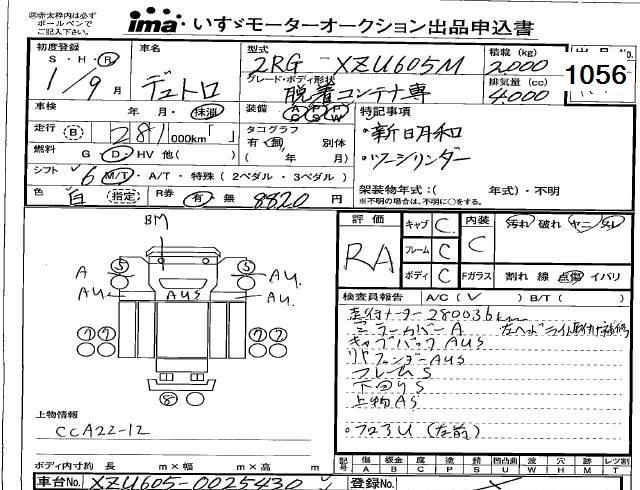 ㊟赤太枠内は必ず
ボールペンで
ご記入下さい。
ima いすゞモーターオークション出品申込書
初度登録
S・H・R
1/9月
車名
デュトロ
型式
2RG-XZU605M
積載 (kg)
2,000
グレード・ボディ形状
脱着コンテナ専
排気量 (cc)
4,000
1056
車検 年 月・抹消
装備 A/C P/S P/W
特記事項
・新日月和
・ツーシリンダー
走行 B 281,000km「 」
タコグラフ
有・無 別体
( 年 月)
燃料 G・D・HV 他( )
シフト 6 M/T・A/T・特殊 (2ペダル・3ペダル)
架装物年式:( 年式)・不明
※不明の場合は、不明に○をする。
色 白 指定 R券 有・無 8820 円
BM
A
5
5
AU
AU
AUS
AU
7 7
7 7
8
上物情報
CCA22-12
評価
RA
キャブ C
フレーム C
ボディ C
内装
C
汚れ 破れ ヤニ
Fガラス 割れ 線 点傷 イバリ
検査員報告 A/C( ✓ ) B/T( )
走行メーター280036km
ミラーカバーA 左ヘッドライト取付け補修
キャブバックAUS
リヤフェンダーAUS
フレームS
下回りS
上物AS
・フロアU (左前)
ボディ内寸約 長 m×幅 m×高 m
記号 傷 A 板金 B 腐 C 塗 P 錆 S 凹凸曲 U 波 W 穴 H 跡 M レツ割 T
車台No. XZU605-0025430
登録No.